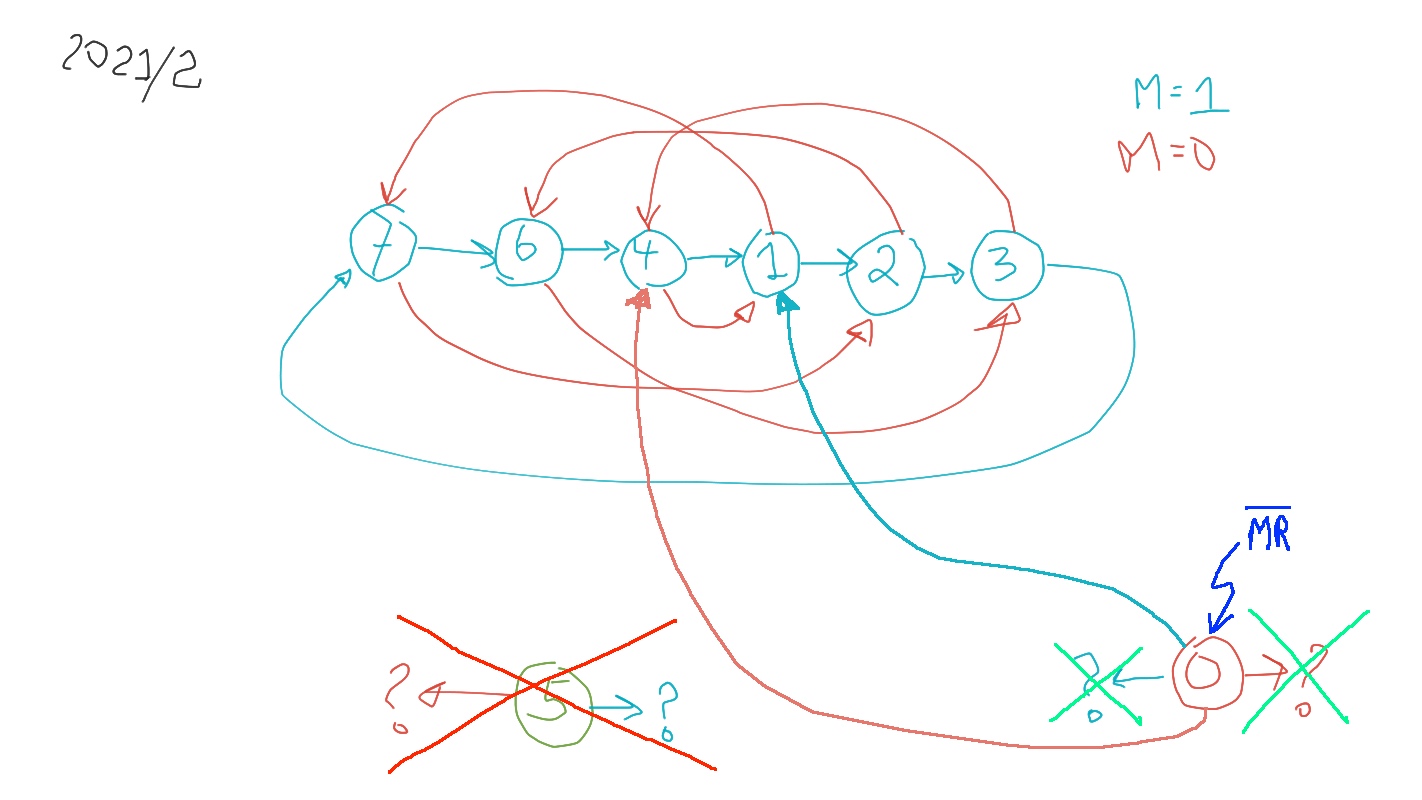 2021/2
M=1
M=0
7 6 4 1 2 3
MR
? 5 ? ? 0 ?